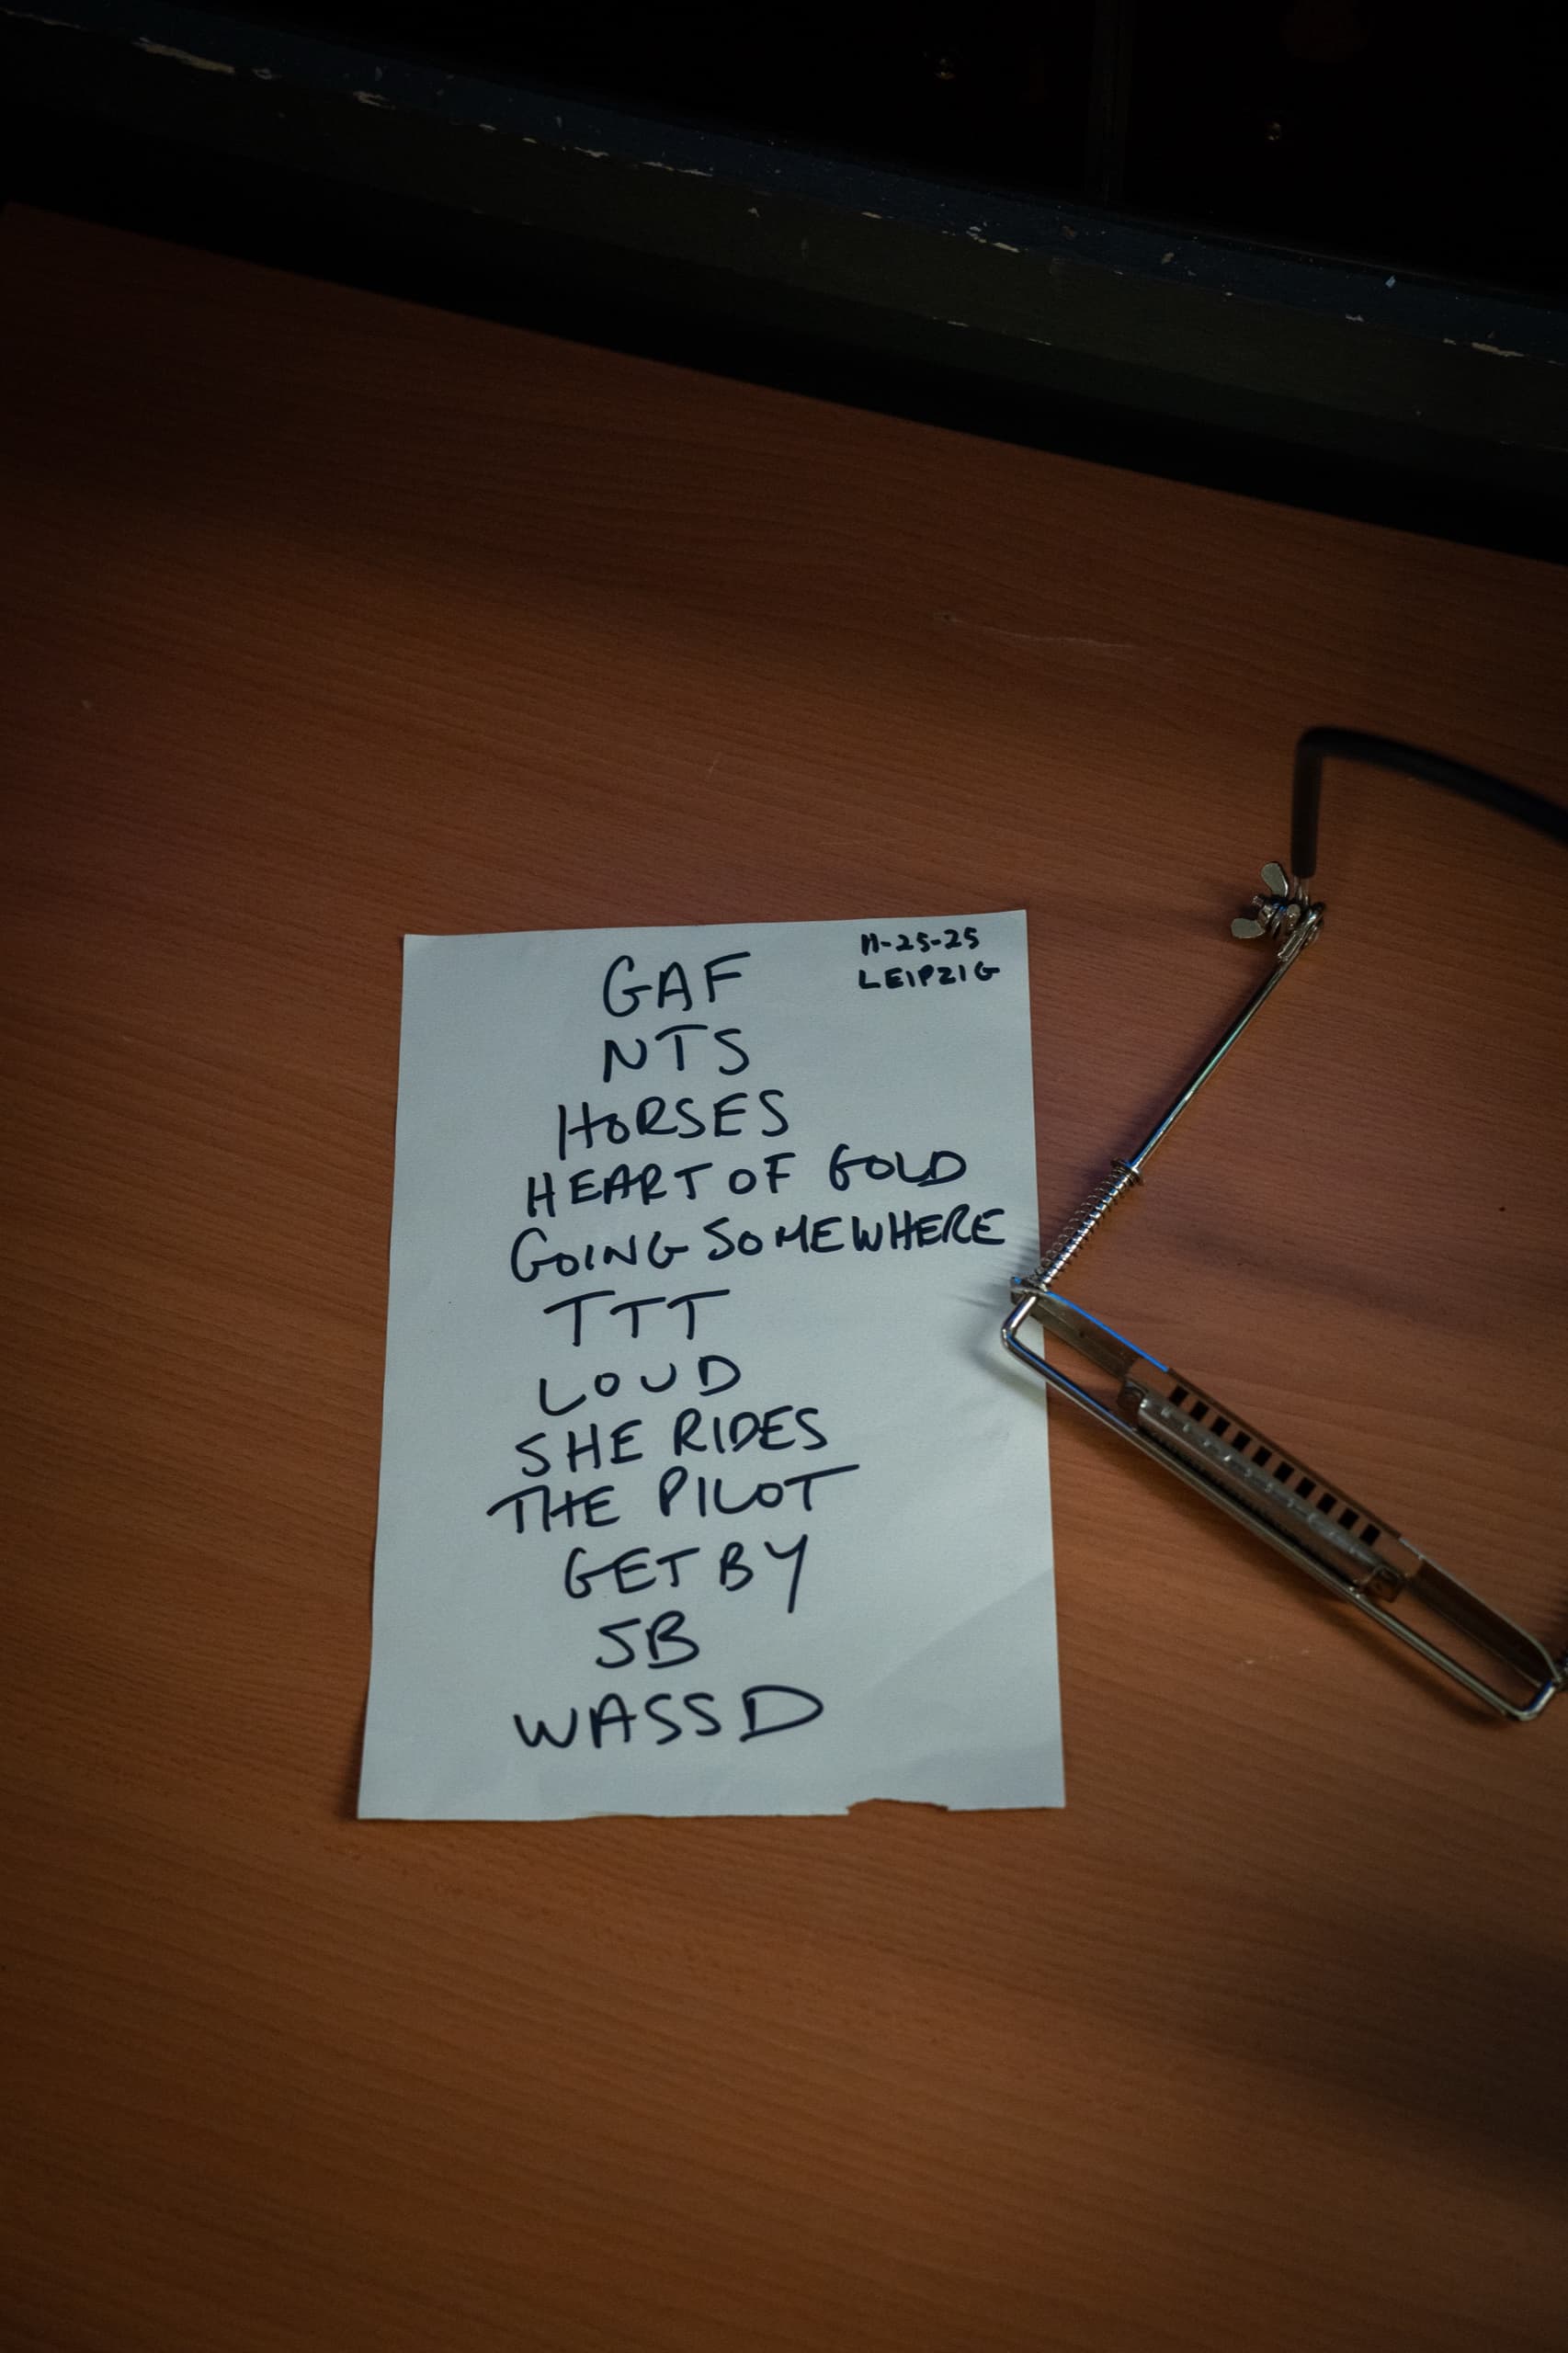 11-25-25
LEIPZIG
GAF
NTS
HORSES
HEART OF GOLD
GOING SOMEWHERE
TTT
LOUD
SHE RIDES
THE PILOT
GET BY
SB
WASSD